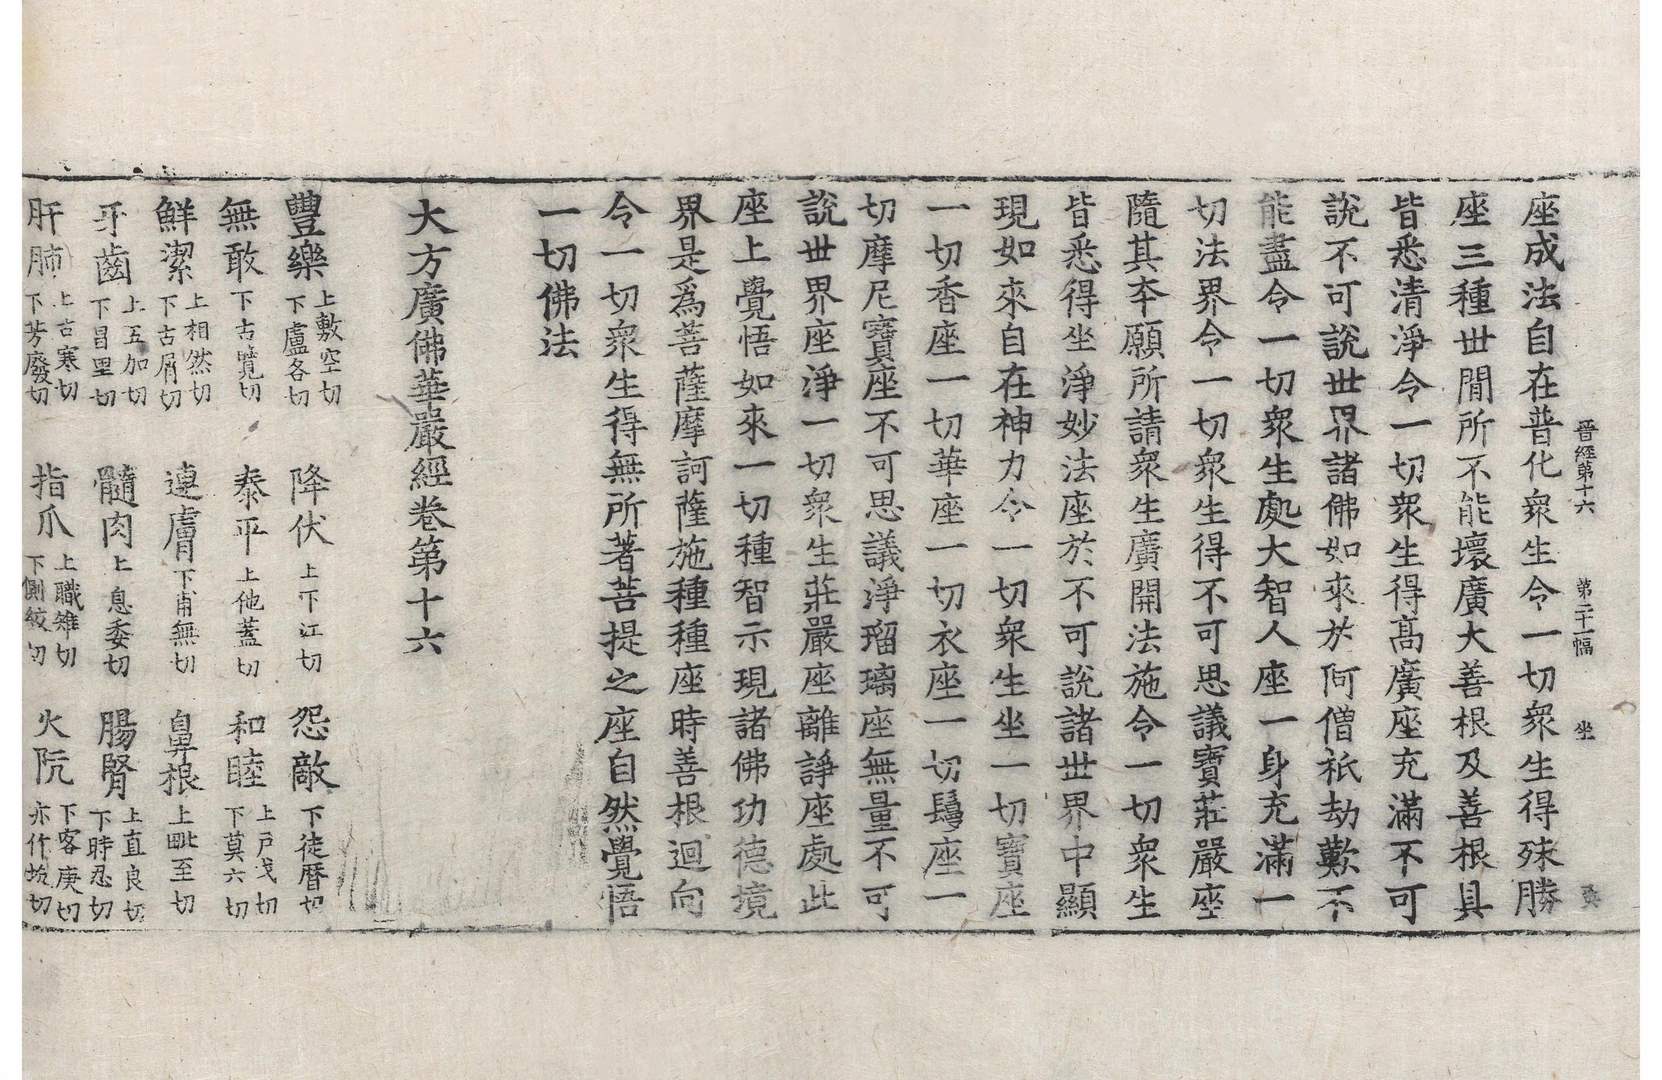 晉經第十六 第二十一幅 坐
座成法自在普化衆生令一切衆生得殊勝
座三種世間所不能壞廣大善根及善根具
皆悉清淨令一切衆生得髙廣座充滿不可
說不可說世界諸佛如來於阿僧祇劫歎不
能盡令一切衆生處大智人座一身充滿一
切法界令一切衆生得不可思議寶莊嚴座
隨其本願所請衆生廣開法施令一切衆生
皆悉得坐淨妙法座於不可說諸世界中顯
現如來自在神力令一切衆生坐一切寶座
一切香座一切華座一切衣座一切鬘座一
切摩尼寶座不可思議淨瑠璃座無量不可
說世界座淨一切衆生莊嚴座離諍座處此
座上覺悟如來一切種智示現諸佛功德境
界是爲菩薩摩訶薩施種種座時善根迴向
令一切衆生得無所著菩提之座自然覺悟
一切佛法
大方廣佛華嚴經卷第十六
豐樂 上敷空切下盧各切 降伏 上下江切 怨敵 下徒曆切
無敢 下古覽切 泰平 上他蓋切 和睦 上戸戈切下莫六切
鮮潔 上相然切下古屑切 連膚 下甫無切 鼻根 上毗至切
牙齒 上五加切下昌里切 髓肉 上息委切 腸腎 上直良切下時忍切
肝肺 上古寒切下芳廢切 指爪 上職雉切下側絞切 火阬 下客庚切亦作坑切